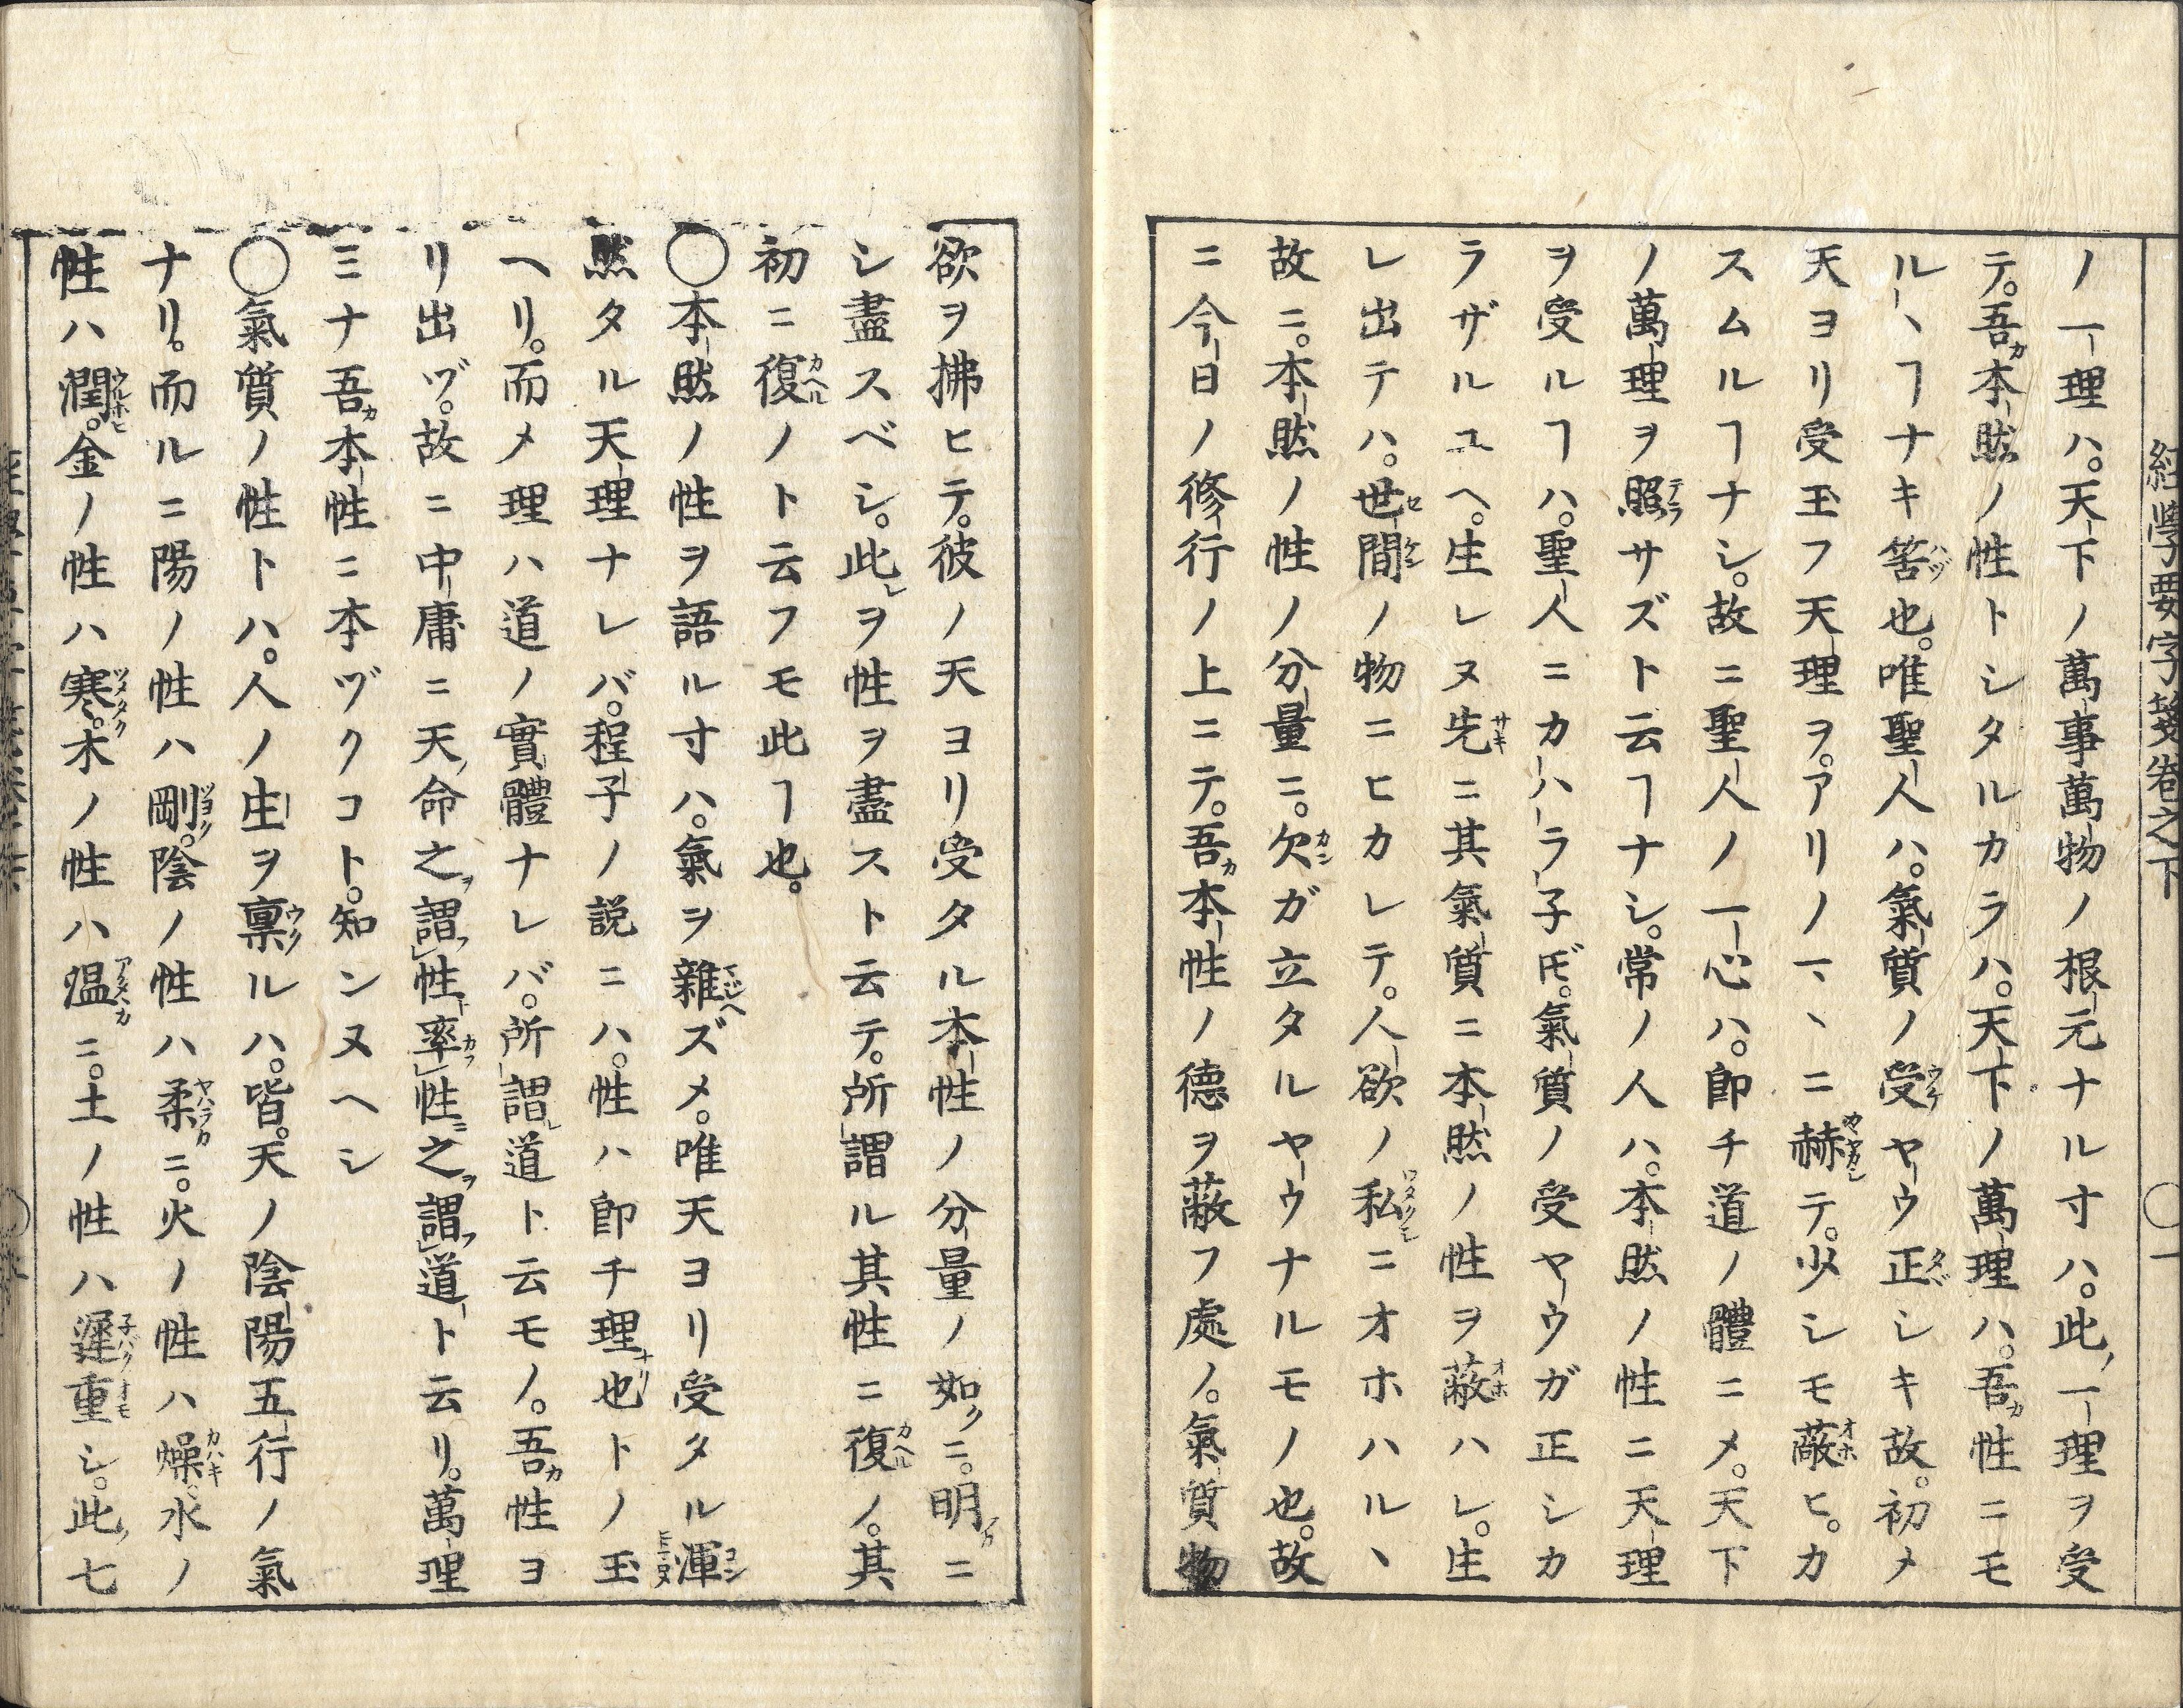 經學要字箋卷之下
〇一
ノ一理ハ。天下ノ萬事萬物ノ根元ナル寸ハ。此ノ一理ヲ受
テ。吾カ本然ノ性トシタルカラハ。天下ノ萬理ハ。吾カ性ニモ
ル丶ヿナキ筈也。唯聖人ハ。氣質ノ受ヤウ正シキ故。初メ
天ヨリ受玉フ天理ヲ。アリノマ丶ニ赫テ。少シモ蔽ヒ。カ
スムルヿナシ。故ニ聖人ノ一心ハ。卽チ道ノ體ニメ。天下
ノ萬理ヲ照サズト云ヿナシ。常ノ人ハ。本然ノ性ニ天理
ヲ受ルヿハ。聖人ニカハラ子𪜈。氣質ノ受ヤウガ正シカ
ラザルユヘ。生レヌ先ニ其氣質ニ本然ノ性ヲ蔽ハレ。生
レ出テハ。世間ノ物ニヒカレテ。人欲ノ私ニオホハル丶
故ニ。本然ノ性ノ分量ニ。欠ガ立タルヤウナルモノ也。故
ニ今日ノ修行ノ上ニテ。吾カ本性ノ德ヲ蔽フ處ノ。氣質物
欲ヲ拂ヒテ。彼ノ天ヨリ受タル本性ノ分量ノ如クニ。明カニ
シ盡スベシ。此レヲ性ヲ盡スト云テ。所謂ル其性ニ復ノ。其
初ニ復ノト云フモ此ヿ也。
〇本然ノ性ヲ語ル寸ハ。氣ヲ雜ズメ。唯天ヨリ受タル渾
然タル天理ナレバ。程子ノ説ニハ。性ハ卽チ理也トノ玉
ヘリ。而メ理ハ道ノ實體ナレバ。所謂道ト云モノ。吾カ性ヨ
リ出ヅ。故ニ中庸ニ天ノ命之ヲ謂フ性ト率フ性ニ之ヲ謂フ道ト云リ。萬理
ミナ吾カ本性ニ本ヅクコト。知ンヌヘシ
〇氣質ノ性トハ。人ノ生ヲ稟ルハ。皆。天ノ陰陽五行ノ氣
ナリ。而ルニ陽ノ性ハ剛。陰ノ性ハ柔ニ。火ノ性ハ燥。水ノ
性ハ潤。金ノ性ハ寒。木ノ性ハ温ニ。土ノ性ハ遲重シ。此ノ七